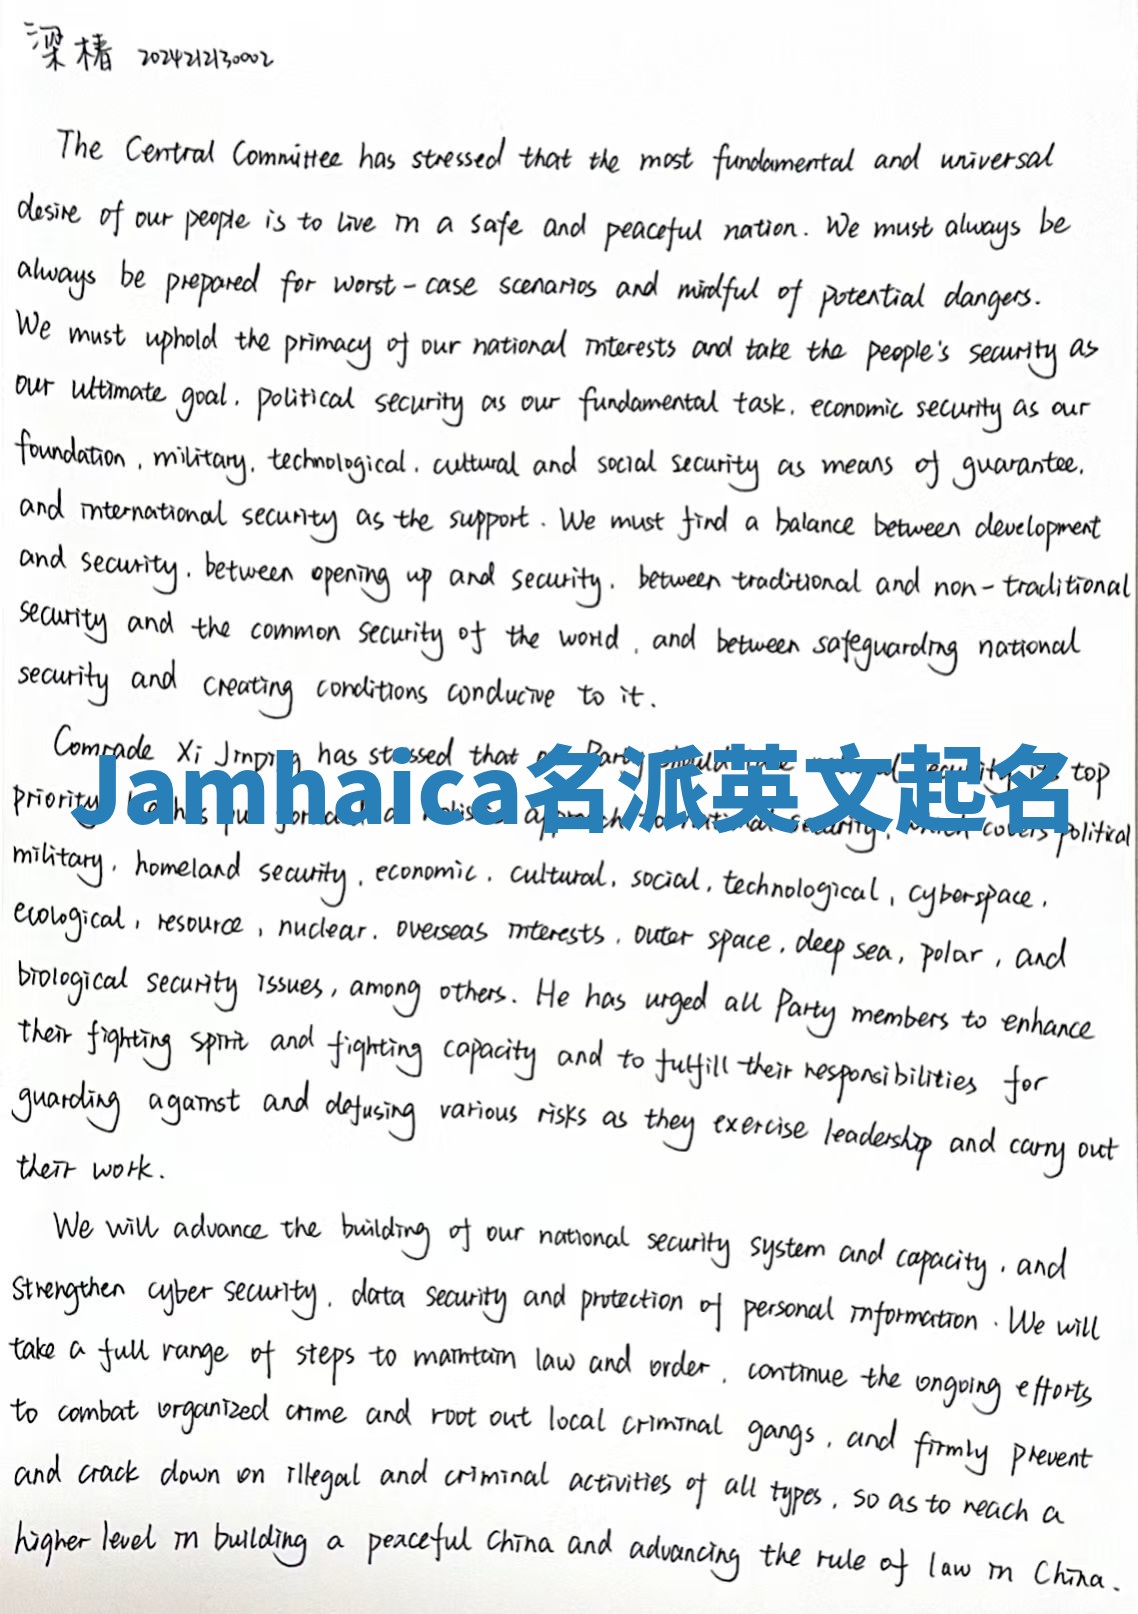 梁椿 2024212130002
The Central Committee has stressed that the most fundamental and universal
desire of our people is to live in a safe and peaceful nation. We must always be
always be prepared for worst-case scenarios and mindful of potential dangers.
We must uphold the primacy of our national interests and take the people's security as
our ultimate goal, political security as our fundamental task, economic security as our
foundation, military, technological, cultural and social security as means of guarantee,
and international security as the support. We must find a balance between development
and security, between opening up and security, between traditional and non-traditional
security and the common security of the world, and between safeguarding national
security and creating conditions conducive to it.
Comrade Xi Jinping has stressed that Party should national security its top
Jamhaica名派英文起名
priority. has put forward a approach to national security, which covers political
military, homeland security, economic, cultural, social, technological, cyberspace,
ecological, resource, nuclear, overseas interests, outer space, deep sea, polar, and
biological security issues, among others. He has urged all Party members to enhance
their fighting spirit and fighting capacity and to fulfill their responsibilities for
guarding against and defusing various risks as they exercise leadership and carry out
their work.
We will advance the building of our national security system and capacity, and
strengthen cyber security, data security and protection of personal information. We will
take a full range of steps to maintain law and order, continue the ongoing efforts
to combat organized crime and root out local criminal gangs, and firmly prevent
and crack down on illegal and criminal activities of all types, so as to reach a
higher level in building a peaceful China and advancing the rule of law in China.